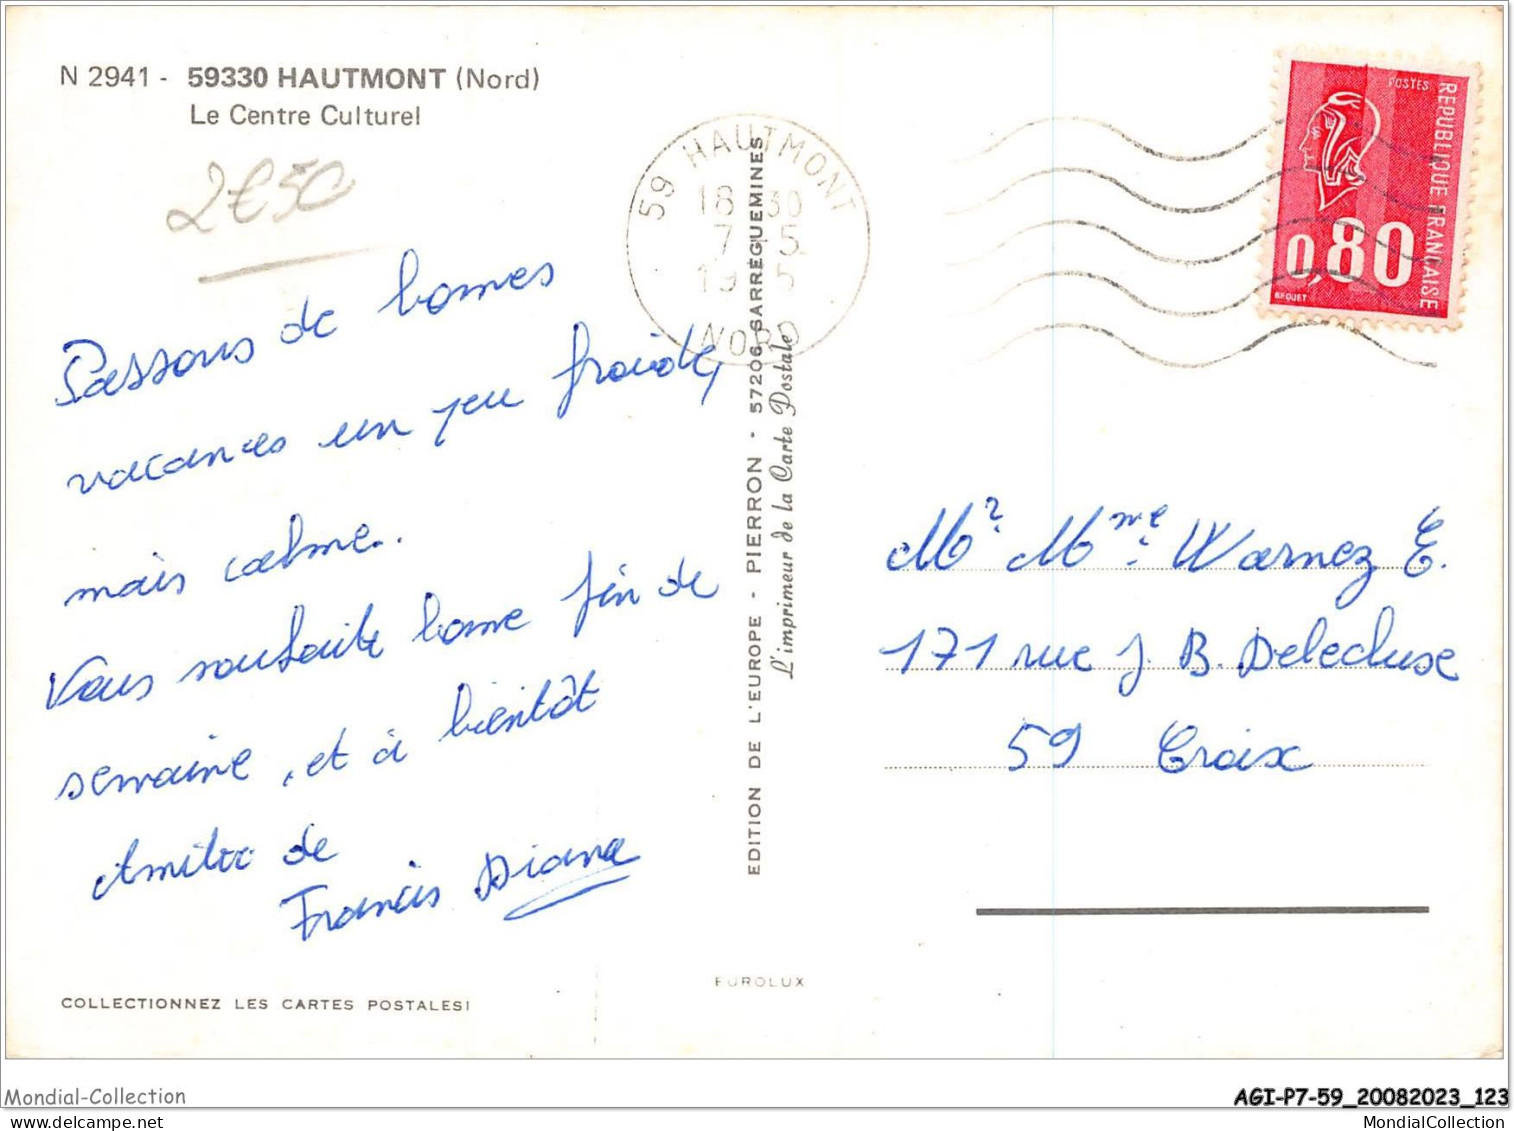 N 2941 - 59330 HAUTMONT (Nord)
Le Centre Culturel
2€50
Passons de bonnes
vacances un peu froide,
mais calme.
Vous souhaite bonne fin de
semaine, et à bientôt
Amitié de
Francis Diane
COLLECTIONNEZ LES CARTES POSTALES!
EDITION DE L'EUROPE - PIERRON - 57206 SARREGUEMINES
L'imprimeur de la Carte Postale
EUROLUX
59 HAUTMONT
18 30
7 5
19 5
NORD
POSTES
REPUBLIQUE FRANCAISE
0,80
BEQUET
Mr. Mme. Warnez E.
171 rue J. B. Delecluse
59 Croix
Mondial-Collection
AGI-P7-59_20082023_123
MondialCollection